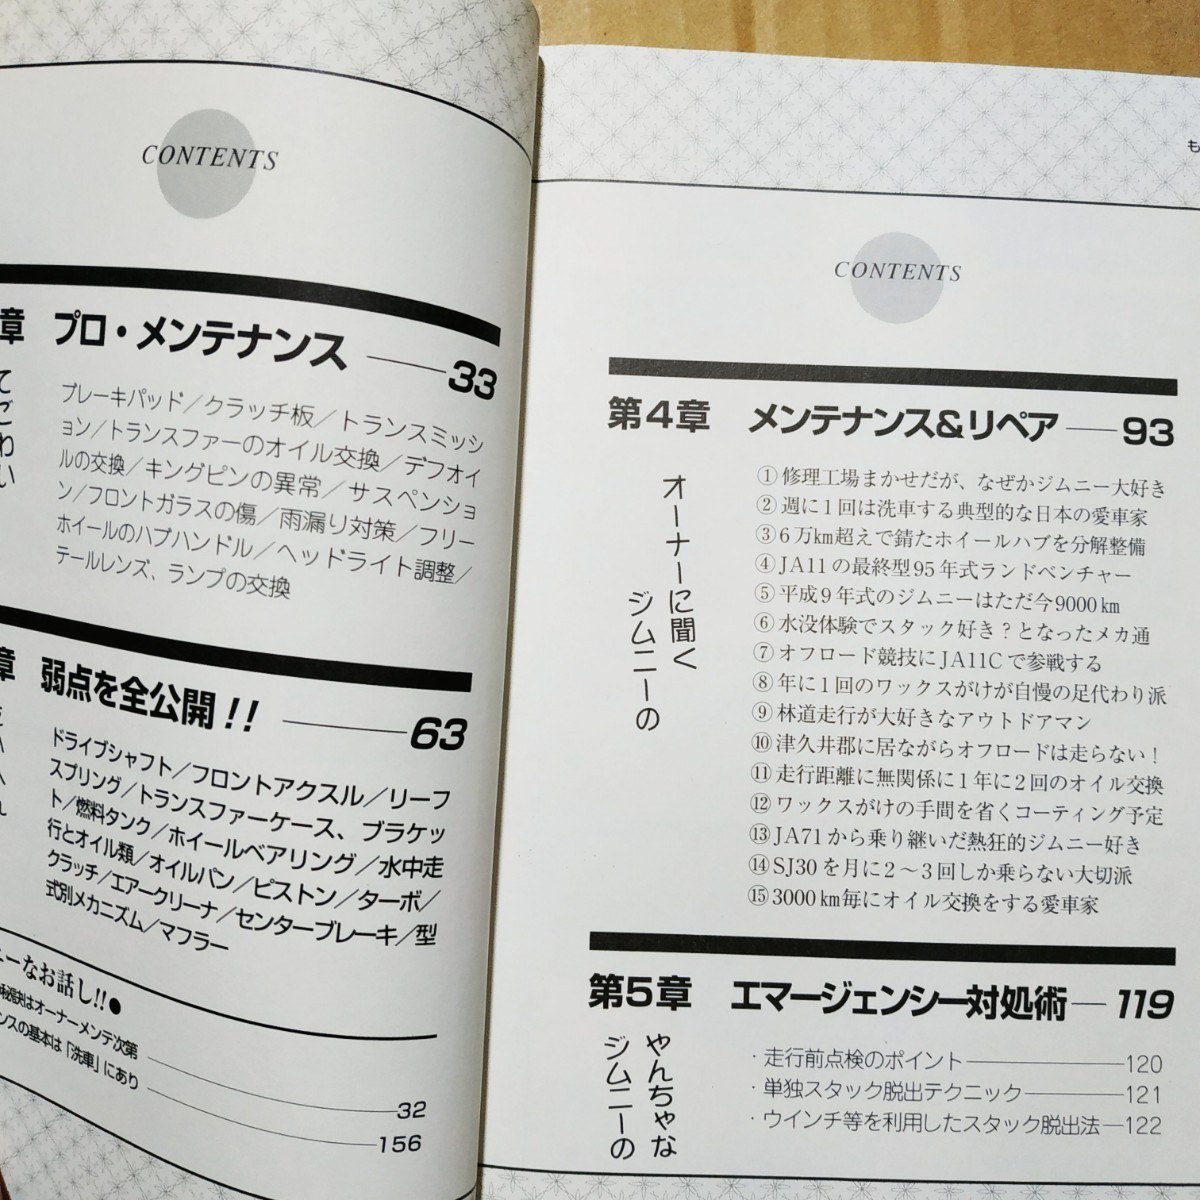 CONTENTS
章 プロ・メンテナンス 33
ブレーキパッド／クラッチ板／トランスミッシ
ョン／トランスファーのオイル交換／デフオイ
ルの交換／キングピンの異常／サスペンショ
ン／フロントガラスの傷／雨漏り対策／フリー
ホイールのハブハンドル／ヘッドライト調整／
テールレンズ、ランプの交換
てごわい
章 弱点を全公開!! 63
ドライブシャフト／フロントアクスル／リーフ
スプリング／トランスファーケース、ブラケッ
ト／燃料タンク／ホイールベアリング／水中走
行とオイル類／オイルパン／ピストン／ターボ／
クラッチ／エアークリーナ／センターブレーキ／型
式別メカニズム／マフラー
ニーなお話し!!●
の秘訣はオーナーメンテ次第 32
ンスの基本は「洗車」にあり 156
も
CONTENTS
第4章 メンテナンス&リペア 93
オーナーに聞く
ジムニーの
①修理工場まかせだが、なぜかジムニー大好き
②週に1回は洗車する典型的な日本の愛車家
③6万km超えで錆たホイールハブを分解整備
④JA11の最終型95年式ランドベンチャー
⑤平成9年式のジムニーはただ今9000km
⑥水没体験でスタック好き?となったメカ通
⑦オフロード競技にJA11Cで参戦する
⑧年に1回のワックスがけが自慢の足代わり派
⑨林道走行が大好きなアウトドアマン
⑩津久井郡に居ながらオフロードは走らない!
⑪走行距離に無関係に1年に2回のオイル交換
⑫ワックスがけの手間を省くコーティング予定
⑬JA71から乗り継いだ熱狂的ジムニー好き
⑭SJ30を月に2〜3回しか乗らない大切派
⑮3000km毎にオイル交換をする愛車家
第5章 エマージェンシー対処術 119
やんちゃな
ジムニーの
・走行前点検のポイント 120
・単独スタック脱出テクニック 121
・ウインチ等を利用したスタック脱出法 122